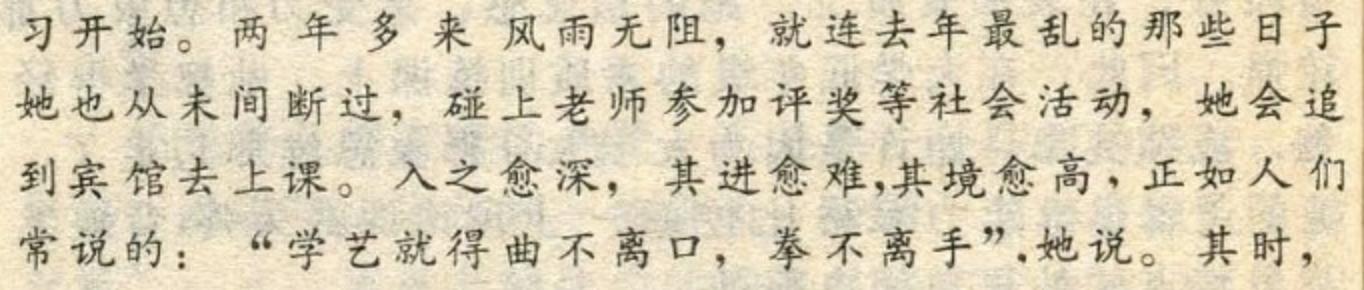 习开始。两年多来风雨无阻，就连去年最乱的那些日子
她也从未间断过，碰上老师参加评奖等社会活动，她会追
到宾馆去上课。入之愈深，其进愈难，其境愈高，正如人们
常说的：“学艺就得曲不离口，拳不离手”．她说。其时，